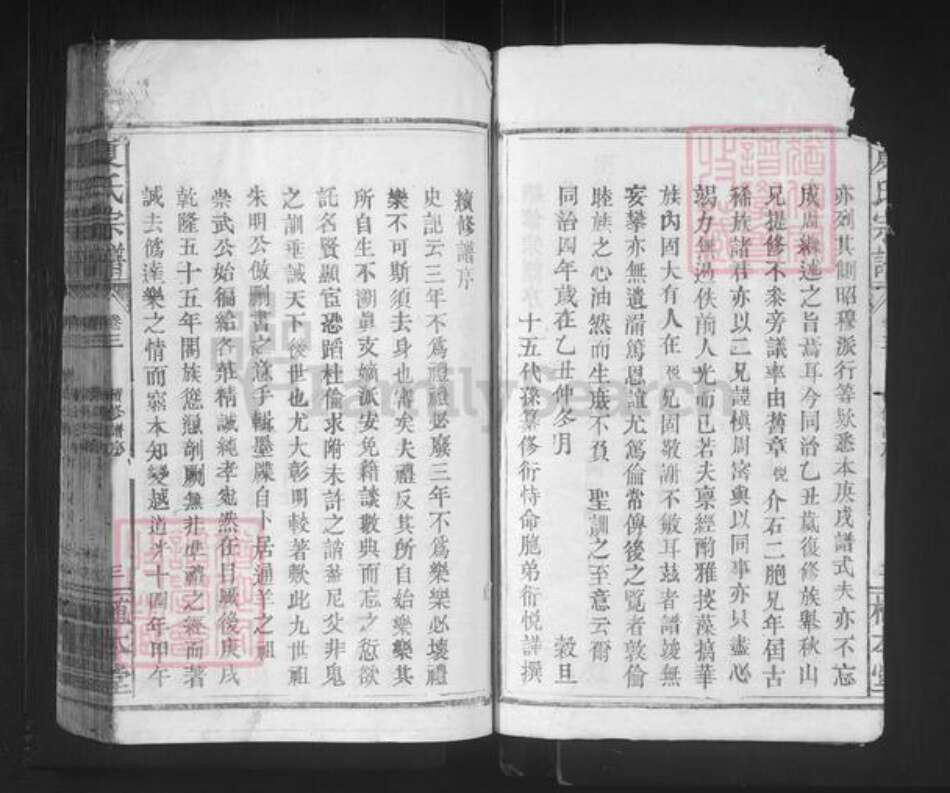 亦列其側昭穆派行等欵悉本庚戌譜式夫亦不忘
成周繼述之旨焉耳今同治乙丑歲復修族舉秋山
兄提修不叅旁議率由舊章悅介石二胞兄年囯古
稀族諸君亦以二兄謹慎周密與以同事亦只盡心
竭力無 佚前人光而已若夫稟經酌雅掞藻摛華
族內固大有人在悅兄固敬謝不敏耳茲者譜竣無
妄攀亦無遺漏篤恩誼尤篤倫常俾後之覽者敦倫
睦族之心油然而生庶不負 聖訓之至意云爾
同治四年歲在乙丑仲冬月 穀旦
十五代孫纂修衍恃命胞弟衍悅謹撰
續修譜序
史記云三年不爲禮禮必廢三年不爲樂樂必壞禮
樂不可斯須去身也審矣夫禮反其所自始樂樂其
所自生不溯眞支嫡派安免籍談數典而忘之愆欲
託名賢顯宦恐蹈杜倫求附未許之誚蓋尼父非鬼
之訓垂誡天下後世也尤大彰明較著歟此九世祖
朱明公倣 書之意手輯墨牒自卜居通羊之祖
崇武公始徧給各莊精誠純孝宛然在目厥後庚戌
乾隆五十五年闔族慫恿剞劂無非準禮之經而著
誠去僞達樂之情而窮本知變越道光十四年甲午
夏氏宗譜
卷三
續修譜序
三
敦本堂